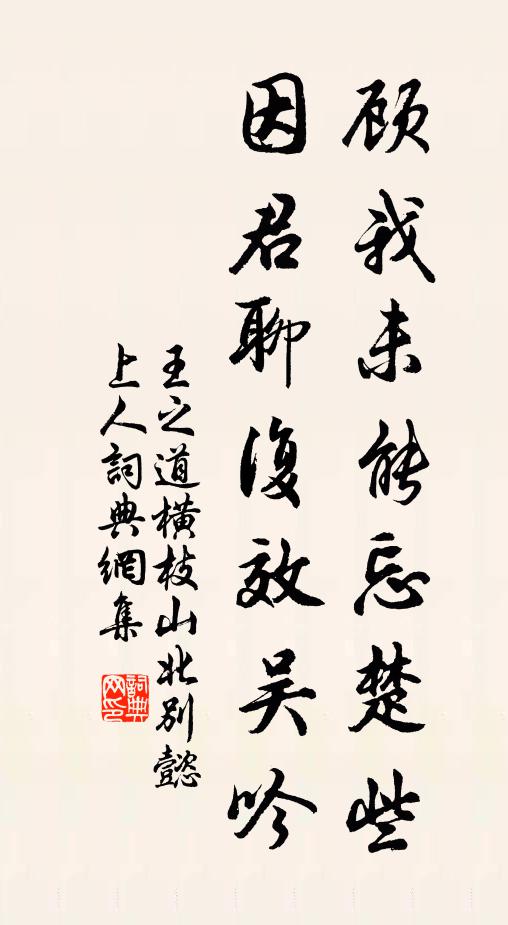 顾我未能忘楚些
因君聊復效吴吟
王之道横枝山北别懿
上人詞典網集
詞典网印